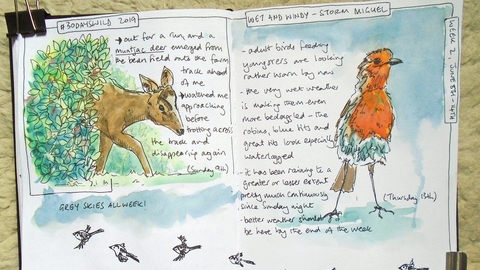 #30DAYSWILD 2019
→out for a run and a
muntjac deer emerged from
the bean field onto the farm
track ahead
of me
→watched me
approaching
before
trotting across
the track and
disappearing again
(Sunday 9th)
GREY SKIES ALL WEEK!
WET AND WINDY - STORM MIGUEL
WEEK 2, JUNE 8TH - 14TH
- adult birds feeding
youngsters are looking
rather worn by now
- the very wet weather
is making them even
more bedraggled - the
robins, blue tits and
great tits look especially
waterlogged
- it has been raining to a
greater or lesser extent
pretty much continuously
since Sunday night
- better weather should
be here by the end of the week
(Thursday 13th)